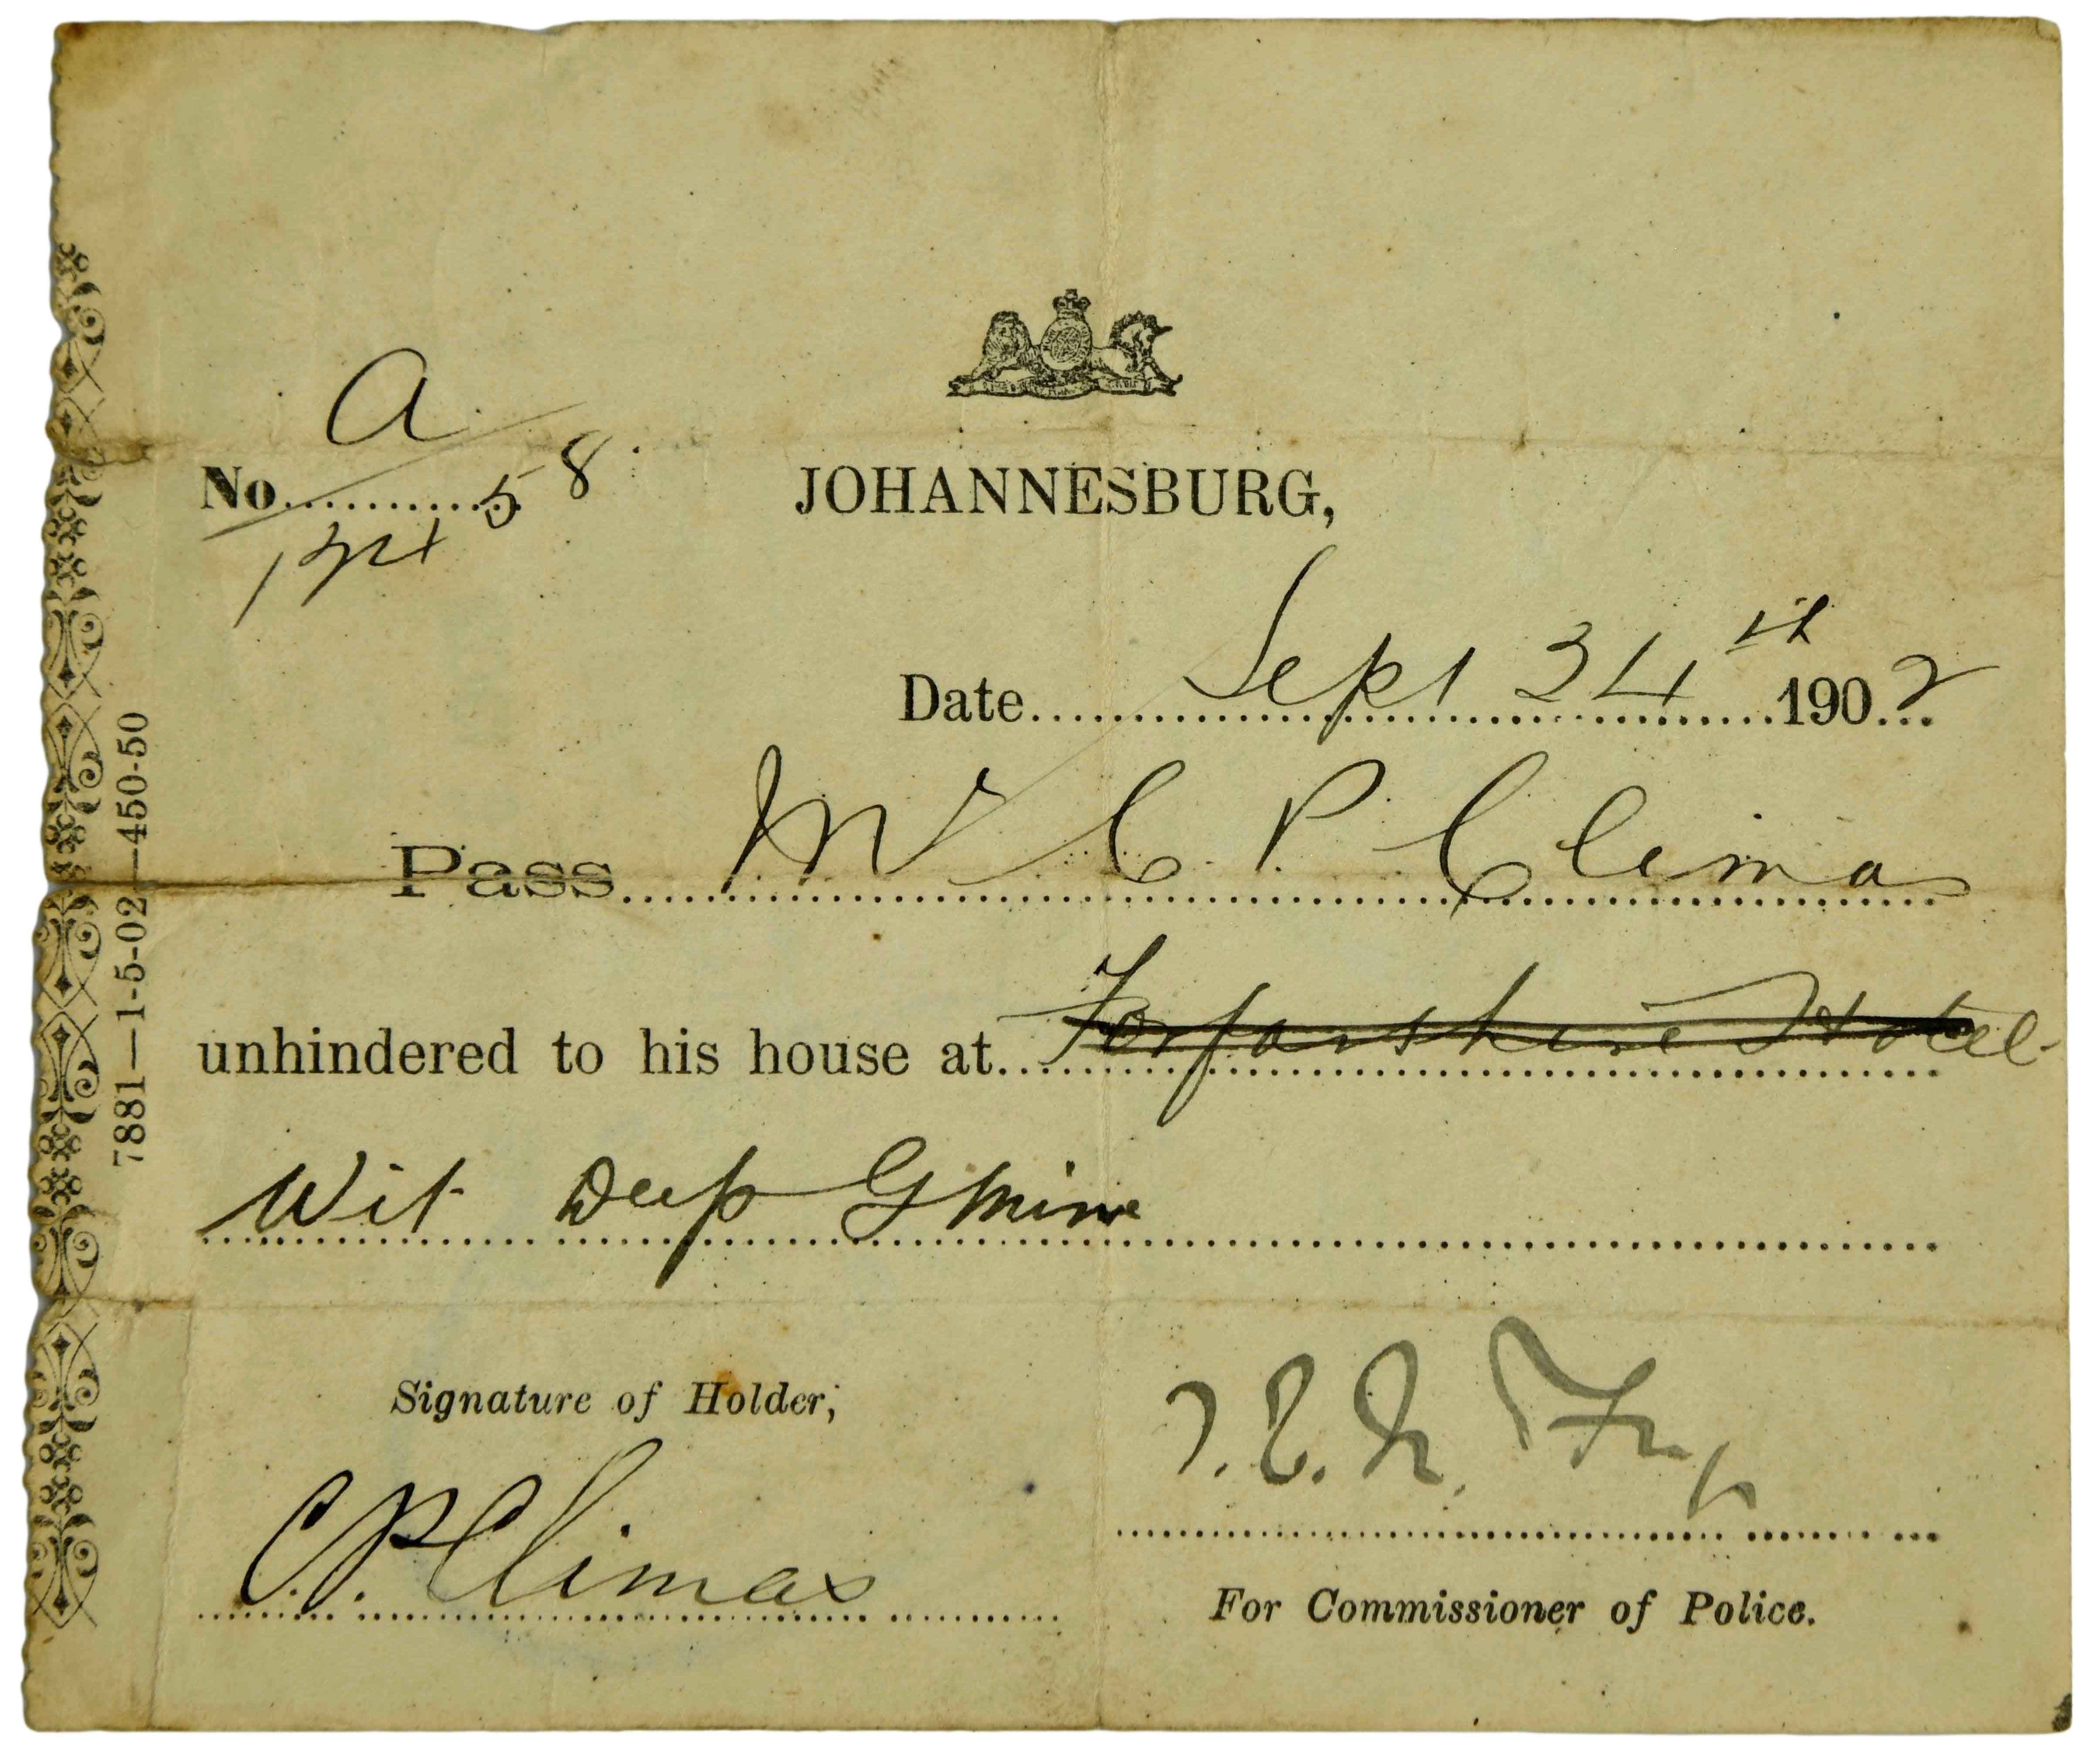 a
No. 58
JOHANNESBURG,
Date Sept 24th 1902
Pass Mr C P Climas
unhindered to his house at Forfarshire Hotel
Wit Deep G Mine
Signature of Holder,
C.P. Climas
For Commissioner of Police.
7881—1-5-02—450-50